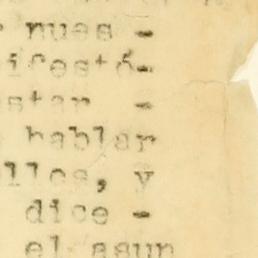 nues -
ifestó-
star -
hablar
llos, y
dice -
el asun